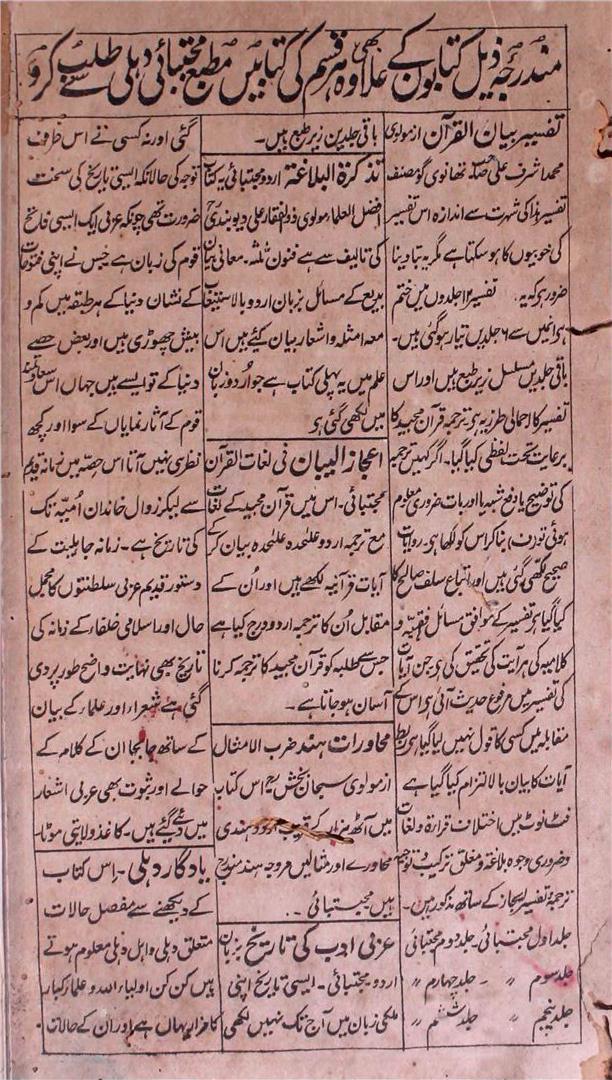 مندرجہ ذیل کتابون کے علاوہ بھی ہر قسم کی کتابیں مطبع مجتبائی دہلی سے طلب کرو
تفسیر بیان القرآن از مولوی
محمد اشرف علی صاحب تھانوی گو مصنف
تفسیر ہذا کی شہرت سے اندازہ اس تفسیر
کی خوبیوں کا ہو سکتا ہے مگر یہ بتا دینا
ضرور ہی کہ یہ تفسیر ۱۲ جلدوں میں ختم
ہی انمیں سے ۶ جلدیں تیار ہو گئی ہیں۔
باقی جلدیں مسلسل زیر طبع ہیں اور اس
تفسیر کا اجمالی طرز یہ ہی ترجمہ قرآن مجید کا
برعایت تحت لفظی کیا گیا۔ اگر کہیں ترجمہ
کی توضیح یا دفع شبہ یا اور بات ضروری معلوم
ہوئی تو (ف) بنا کر اس کو لکھا ہی۔ روایات
صحیح لکھی گئی ہیں اور اتباع سلف صالح کا
کیا گیا ہر تفسیر کے موافق مسائل فقہیہ و
کلامیہ کی ہر آیت کی تحقیق کی ہی جن آیات
کی تفسیر میں مرفوع حدیث آئی ہی اس کے
مقابلہ میں کسی کا قول نہیں لیا گیا ہی ربط
آیات کا بیان بالالتزام کیا گیا ہے
فٹ نوٹ میں اختلاف قراءۃ و لغات
و ضروری وجوہ بلاغۃ و مغلق ترکیب و توجیہ
ترجمہ و تفسیر ایجاز کے ساتھ مذکور ہیں۔
جلد اول مجتبائی۔ جلد دوم مجتبائی
جلد سوم 〃 ۔ جلد چہارم 〃
جلد پنجم 〃 جلد ششم 〃
باقی جلدین زیر طبع ہیں۔
تذکرۃ البلاغۃ اردو مجتبائی یہ کتاب
افضل العلما مولوی ذوالفقار علی دیوبندی
کی تالیف سے ہے فنون ثلثہ۔ معانی بیان
بدیع کے مسائل بزبان اردو بالاستیعاب
معہ امثلہ و اشعار بیان کیئے ہیں اس
علم میں یہ پہلی کتاب ہے جو اردو زبان
میں لکھی گئی ہی
اعجاز البیان فی لغات القرآن
مجتبائی۔ اس میں قرآن مجید کے لغات
مع ترجمہ اردو علٰحدہ علٰحدہ بیان کر کے
آیات قرآنیہ لکھے ہیں اور اُن کے
مقابل اُن کا ترجمہ اردو درج کیا ہے
جس سے طلبہ کو قرآن مجید کا ترجمہ کرنا
آسان ہو جاتا ہے۔
محاورات ہند ضرب الامثال
از مولوی سبحان بخش اس کتاب
میں آٹھ ہزار کے قریب اردو ہندی
محاورے اور مثالیں مروجہ ہند مندرج
ہیں مجتبائی۔
عربی ادب کی تاریخ بزبان
اردو۔ مجتبائی۔ ایسی تاریخ اپنی
ملکی زبان میں آج تک نہیں لکھی
گئی اور نہ کسی نے اس طرف
توجہ کی حالانکہ ایسی تاریخ کی سخت
ضرورت تھی چونکہ عربی ایک ایسی فاتح
قوم کی زبان ہے جس نے اپنی فتوحات
کے نشان دنیا کے ہر طبقہ میں کم و
بیش چھوڑی ہیں اور بعض حصے
دنیا کے تو ایسے ہیں جہاں اس
قوم کے آثار نمایاں کے سوا اور کچھ
نظر ہی نہیں آتا اس حصّہ میں زمانہ قدیم
سے لیکر زوال خاندان اُمیّہ تک
کی تاریخ ہے۔ زمانہ جاہلیت کے
دستور قدیم عربی سلطنتوں کا مجمل
حال اور اسلامی خلفاء کے زمانہ کی
تاریخ بھی نہایت واضح طور پر دی
گئی ہے شعراء اور علماء کے بیان
کے ساتھ جابجا ان کے کلام کے
حوالے اور ثبوت بھی عربی اشعار
میں دئے گئے ہیں۔ کاغذ ولایتی موٹا۔
یادگار دہلی۔ اس کتاب
کے دیکھنے سے مفصل حالات
متعلق دہلی و اہل دہلی معلوم ہوتے
ہیں کن کن اولیاء اللہ و علماء کبار
کا مزار یہاں ہے اور ان کے حالات